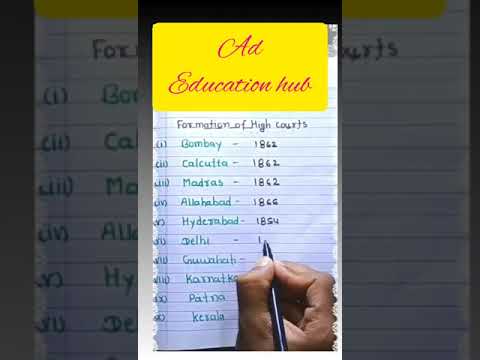 Ad
Education hub
Formation of High Courts
(i) Bombay - 1862
(ii) Calcutta - 1862
(iii) Madras - 1862
(iv) Allahabad - 1866
(v) Hyderabad - 1854
(vi) Delhi - 1
(vii) Guwahati -
(viii) Karnatka
(ix) Patna
(x) Kerala